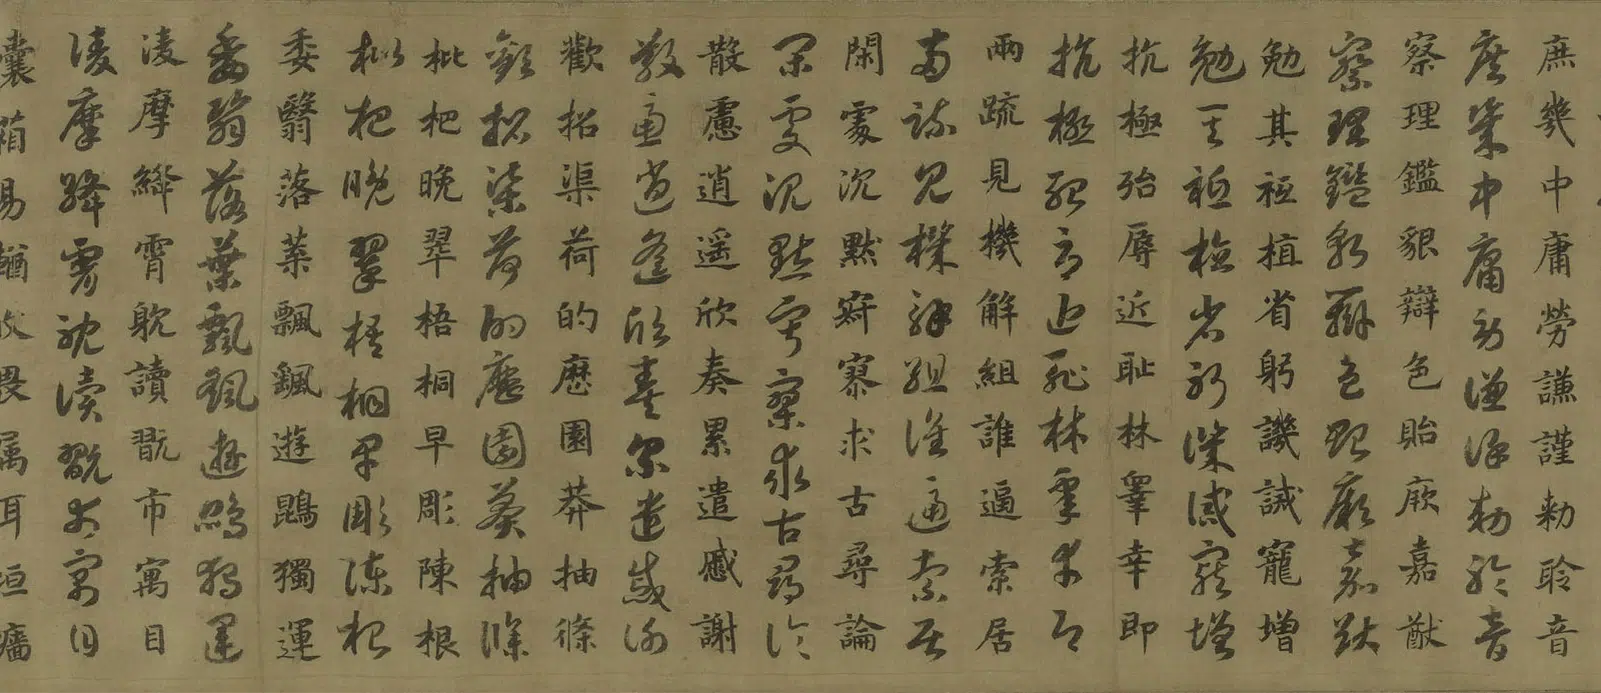 庶幾中庸勞謙謹勅聆音
庶幾中庸勞謙謹勅聆音
察理鑑貌辯色貽厥嘉猷
察理鑑貌辯色貽厥嘉猷
勉其祗植省躬譏誡寵增
勉其祗植省躬譏誡寵增
抗極殆辱近耻林睾幸即
抗極殆辱近耻林睾幸即
兩疏見機解組誰逼索居
兩疏見機解組誰逼索居
閑處沉默寂寥求古尋論
閑處沉默寂寥求古尋論
散慮逍遥欣奏累遣慼謝
散慮逍遥欣奏累遣慼謝
歡招渠荷的歷園莽抽條
歡招渠荷的歷園莽抽條
枇杷晚翠梧桐早彫陳根
枇杷晚翠梧桐早彫陳根
委翳落葉飄颻遊鵾獨運
委翳落葉飄颻遊鵾獨運
凌摩絳霄耽讀翫市寓目
凌摩絳霄耽讀翫市寓目
囊箱易輶攸畏屬耳垣牆